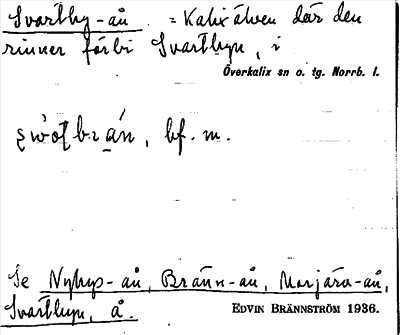 Svartby-ån = Kalix älven där den
rinner förbi Svartbyn, i
Överkalix sn o. tg. Norrb. l.
bf. m.
Se Nybyn-ån, Bränn-ån, Morjärv-ån,
Svartbyn, å. EDVIN BRÄNNSTRÖM 1936.